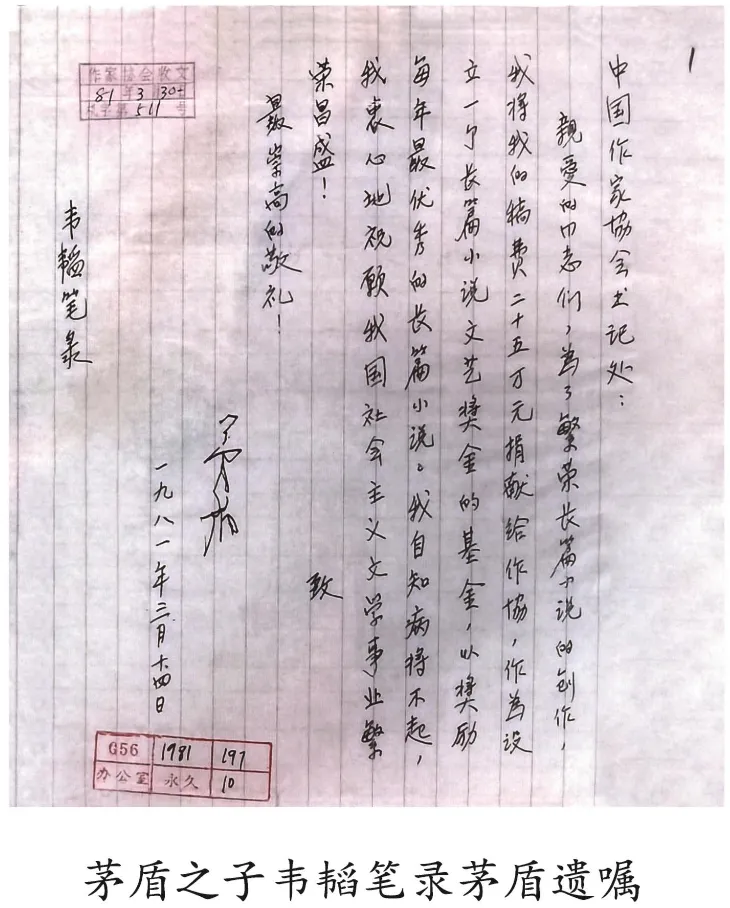 1
中国作家协会书记处：
親爱的同志们，為了繁荣长篇小说的创作，
我将我的稿费二十五万元捐献给作协，作為设
立一个长篇小说文艺奖金的基金，以奖励
每年最优秀的长篇小说。我自知病将不起，
我衷心地祝愿我国社会主义文学事业繁
荣昌盛！
致
最崇高的敬礼！
茅盾
一九八一年三月十四日
韦韬笔录
作家协会收文
81年3月30日
字第511号
G56 1981 197
办公室 永久 10
茅盾之子韦韬笔录茅盾遗嘱